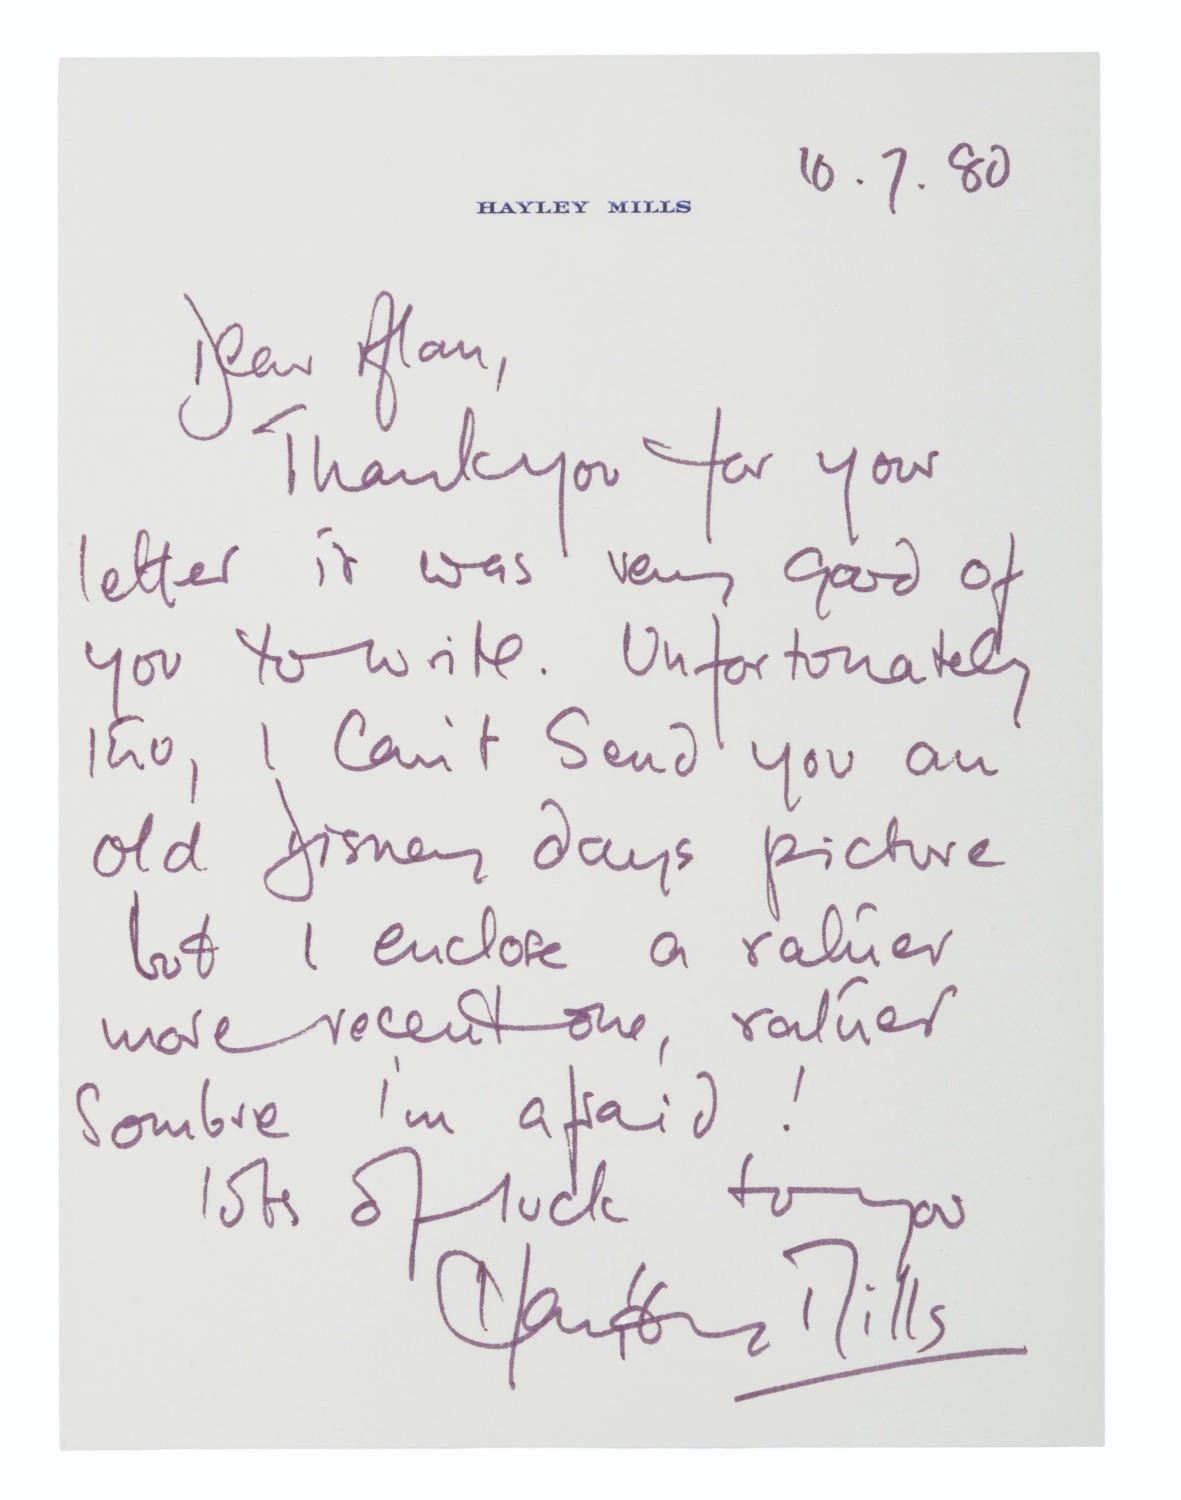 10.7.80
HAYLEY MILLS
Dear Alan,
Thankyou for your
letter it was very good of
you to write. Unfortunately
tho, I can't send you an
old Disney days picture
but I enclose a rather
more recent one, rather
Sombre I'm afraid!
lots of luck to you
Hayley Mills